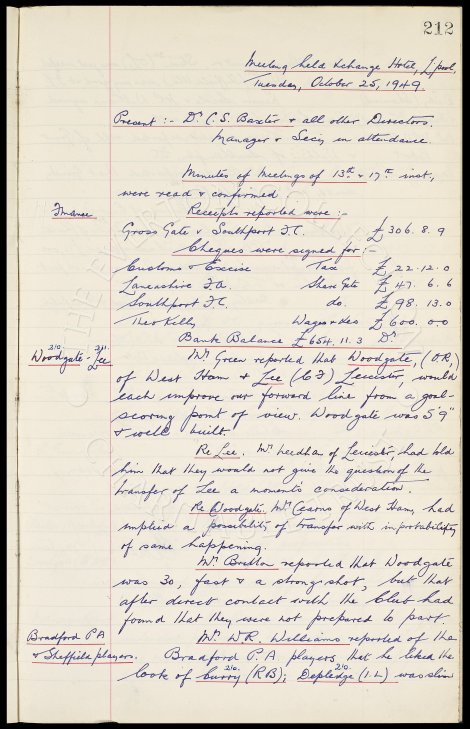 212
Meeting held Exchange Hotel, L'pool,
Tuesday, October 25, 1949.
Present :- Dr. C. S. Baxter & all other Directors.
Manager & Secy in attendance.
Minutes of Meetings of 13th & 17th inst.,
were read & confirmed
Finance
Receipts reported were :-
Gross Gate v Southport F.C. £306. 8. 9
Cheques were signed for :-
Customs & Excise Tax £22. 12. 0
Lancashire F.A. Share Gate £47. 6. 6
Southport F.C. do. £98. 13. 0
Theo Kelly Wages & Exs £600. 0. 0
Bank Balance £654. 11. 3 Dr
Woodgate - Lee
210 211
Mr. Green reported that Woodgate, (O.R.)
of West Ham & Lee (C.F.) Leicester, would
each improve our forward line from a goal-
scoring point of view. Woodgate was 5'9"
& well built
Re Lee. Mr. Needham of Leicester, had told
him that they would not give the question of the
transfer of Lee a moments consideration.
Re Woodgate. Mr. Cearns of West Ham, had
implied a possibility of transfer with improbability
of same happening.
Mr. Britton reported that Woodgate
was 30, fast & a strong shot, but that
after direct contact with the Club had
found that they were not prepared to part.
Bradford P.A
& Sheffield players.
Mr. W.R. Williams reported of the
Bradford P.A. players, that he liked the
look of Currry (R.B); Depledge (I.L) was slim
210 210